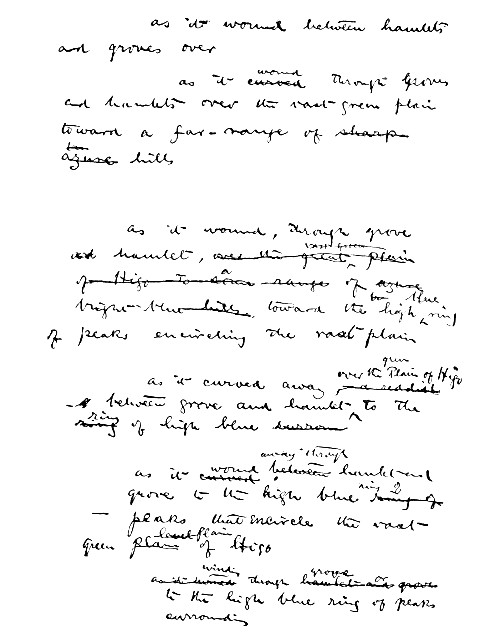 as it wound between hamlets
and groves over
wound
as it curved through groves
and hamlets over the vast green plain
toward a far-range of sharp
azure hills
as it wound, through grove
vast green
and hamlet, over the great plain
of Higo to a range of azure
blue
bright blue hills, toward the high ring
of peaks encircling the vast plain
green
over the Plain of Higo
as it curved away, a reddish
between grove and hamlet to the
ring
ring of high blue
away through
wound
as it curved between hamlet and
ring of
grove to the high blue ring of
peaks that encircle the vast
level plain
green plain of Higo
winds grove
as it wound through hamlets and groves
to the high blue ring of peaks
surrounding